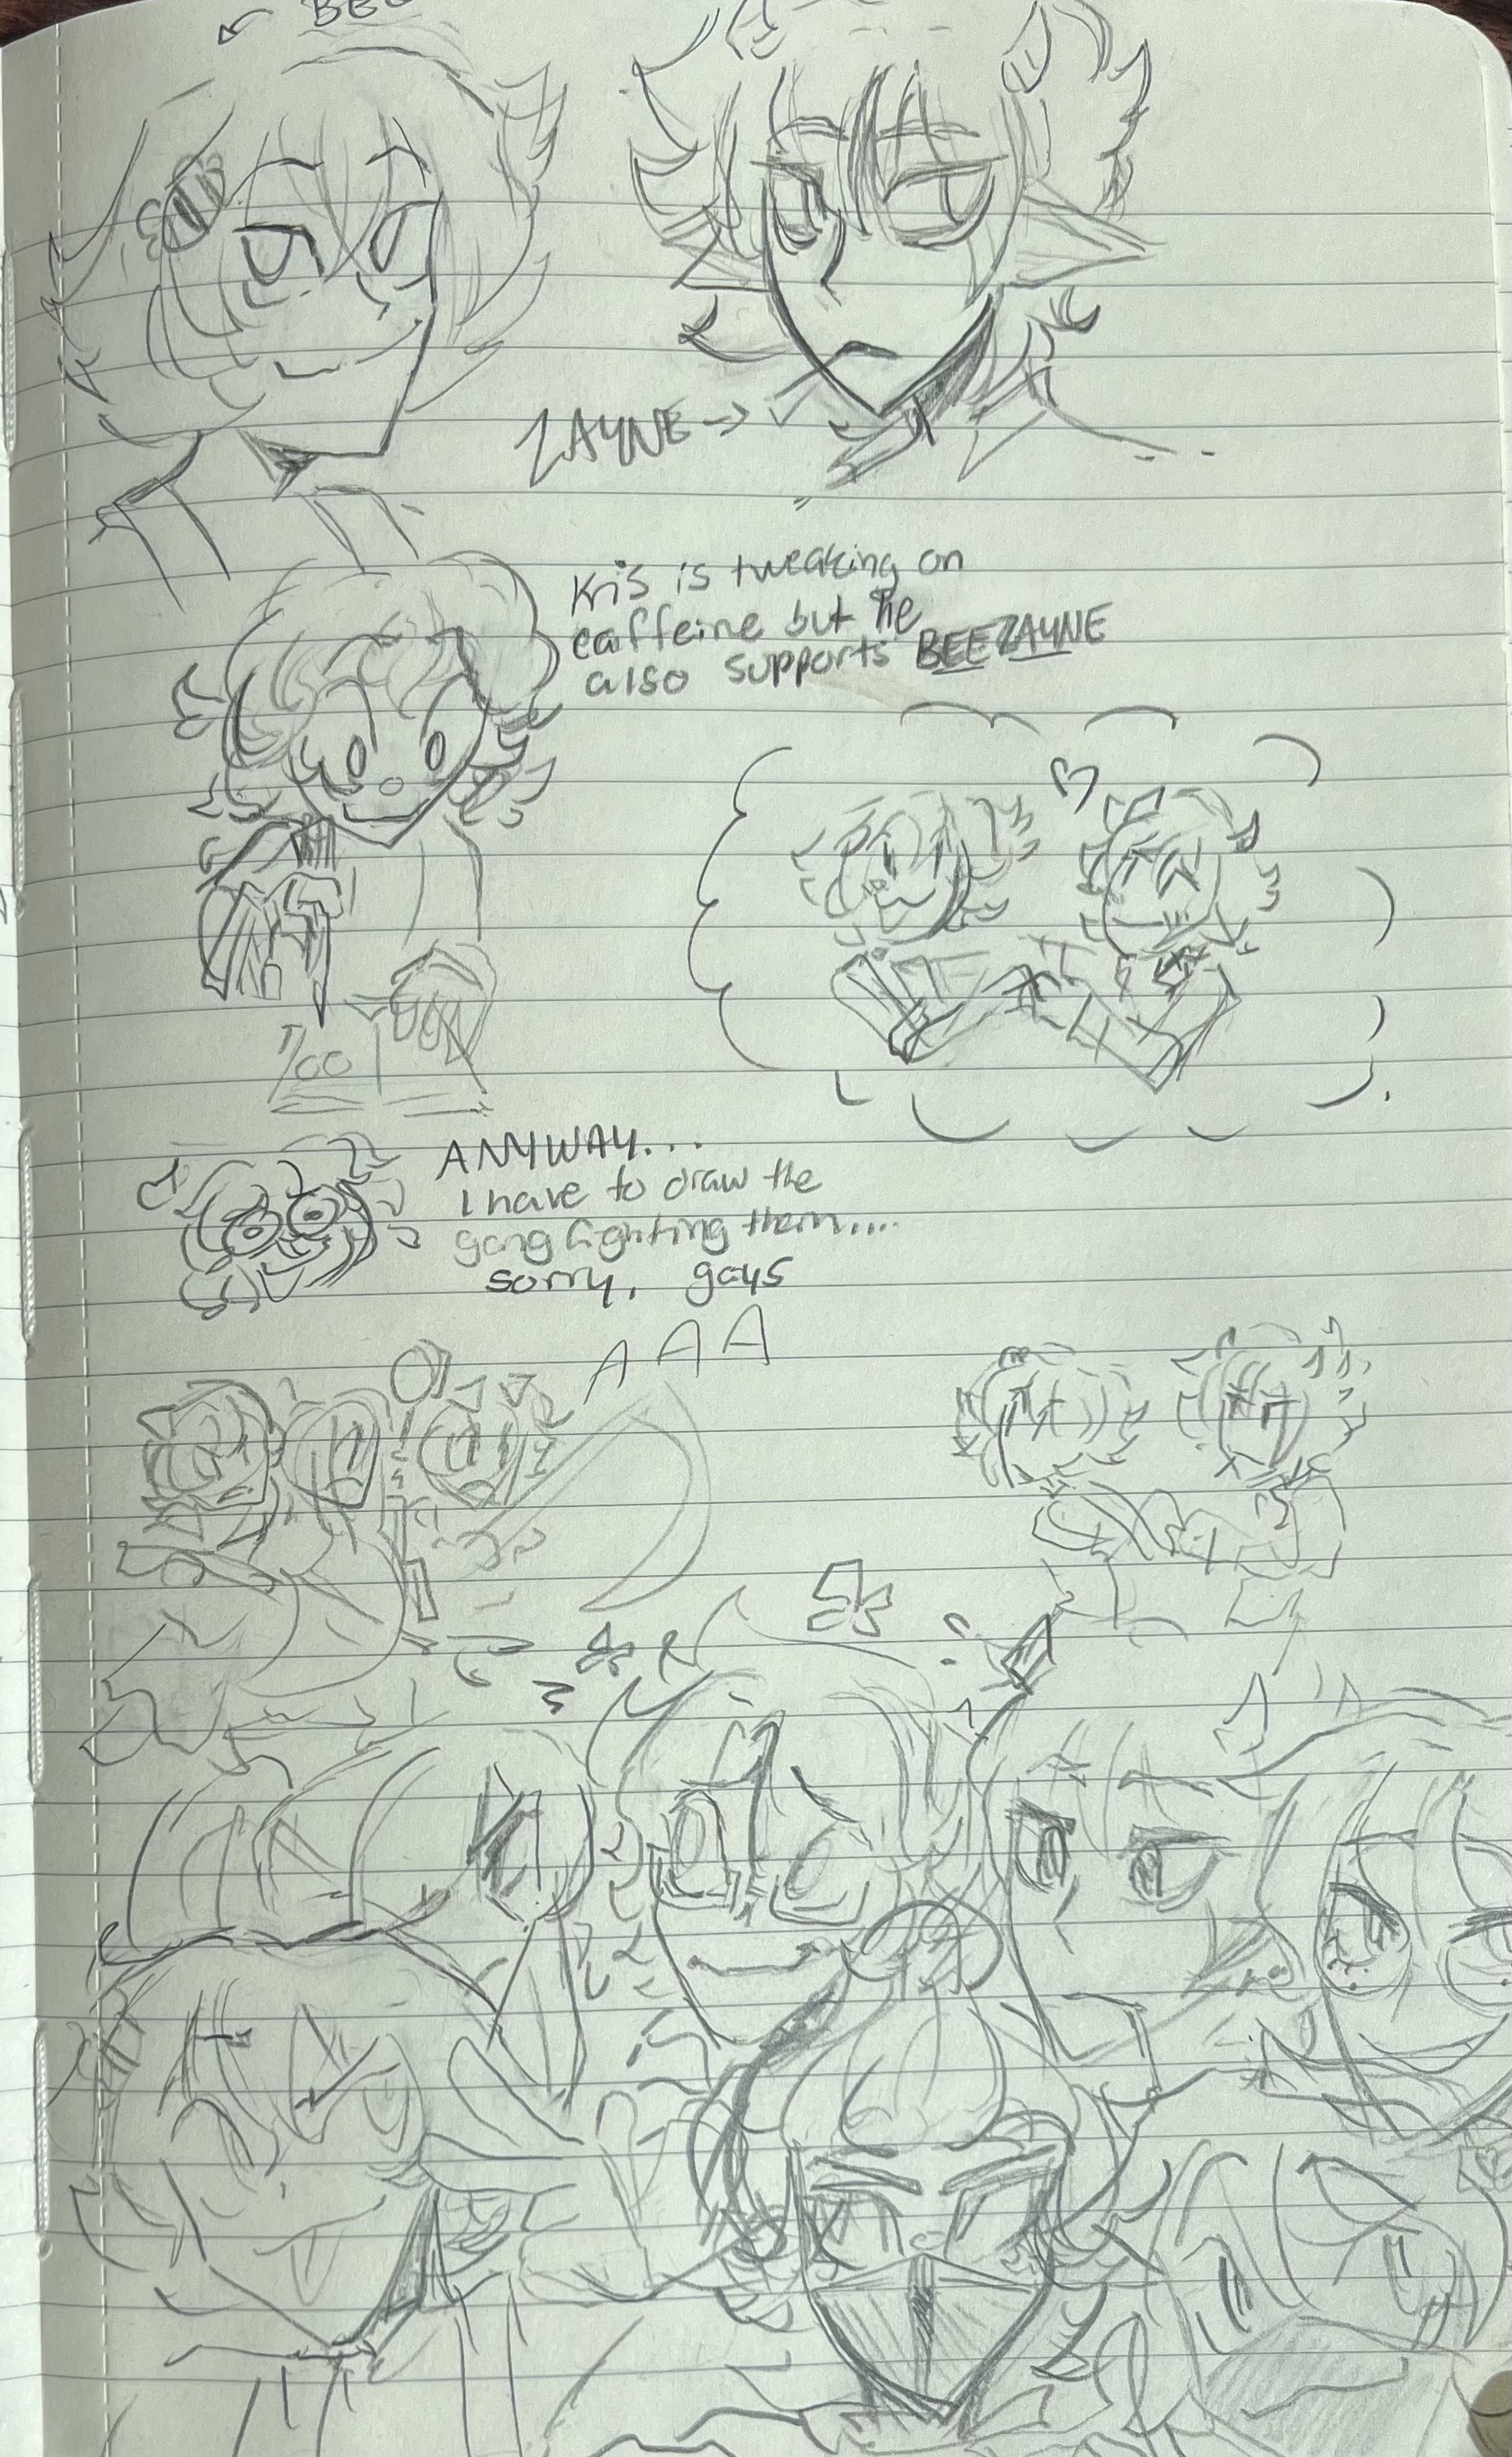 ← BEE
ZAYNE →
Kris is tweaking on
caffeine but he
also supports BEEZAYNE
ANYWAY...
I have to draw the
gang fighting them....
sorry, gays
AAA